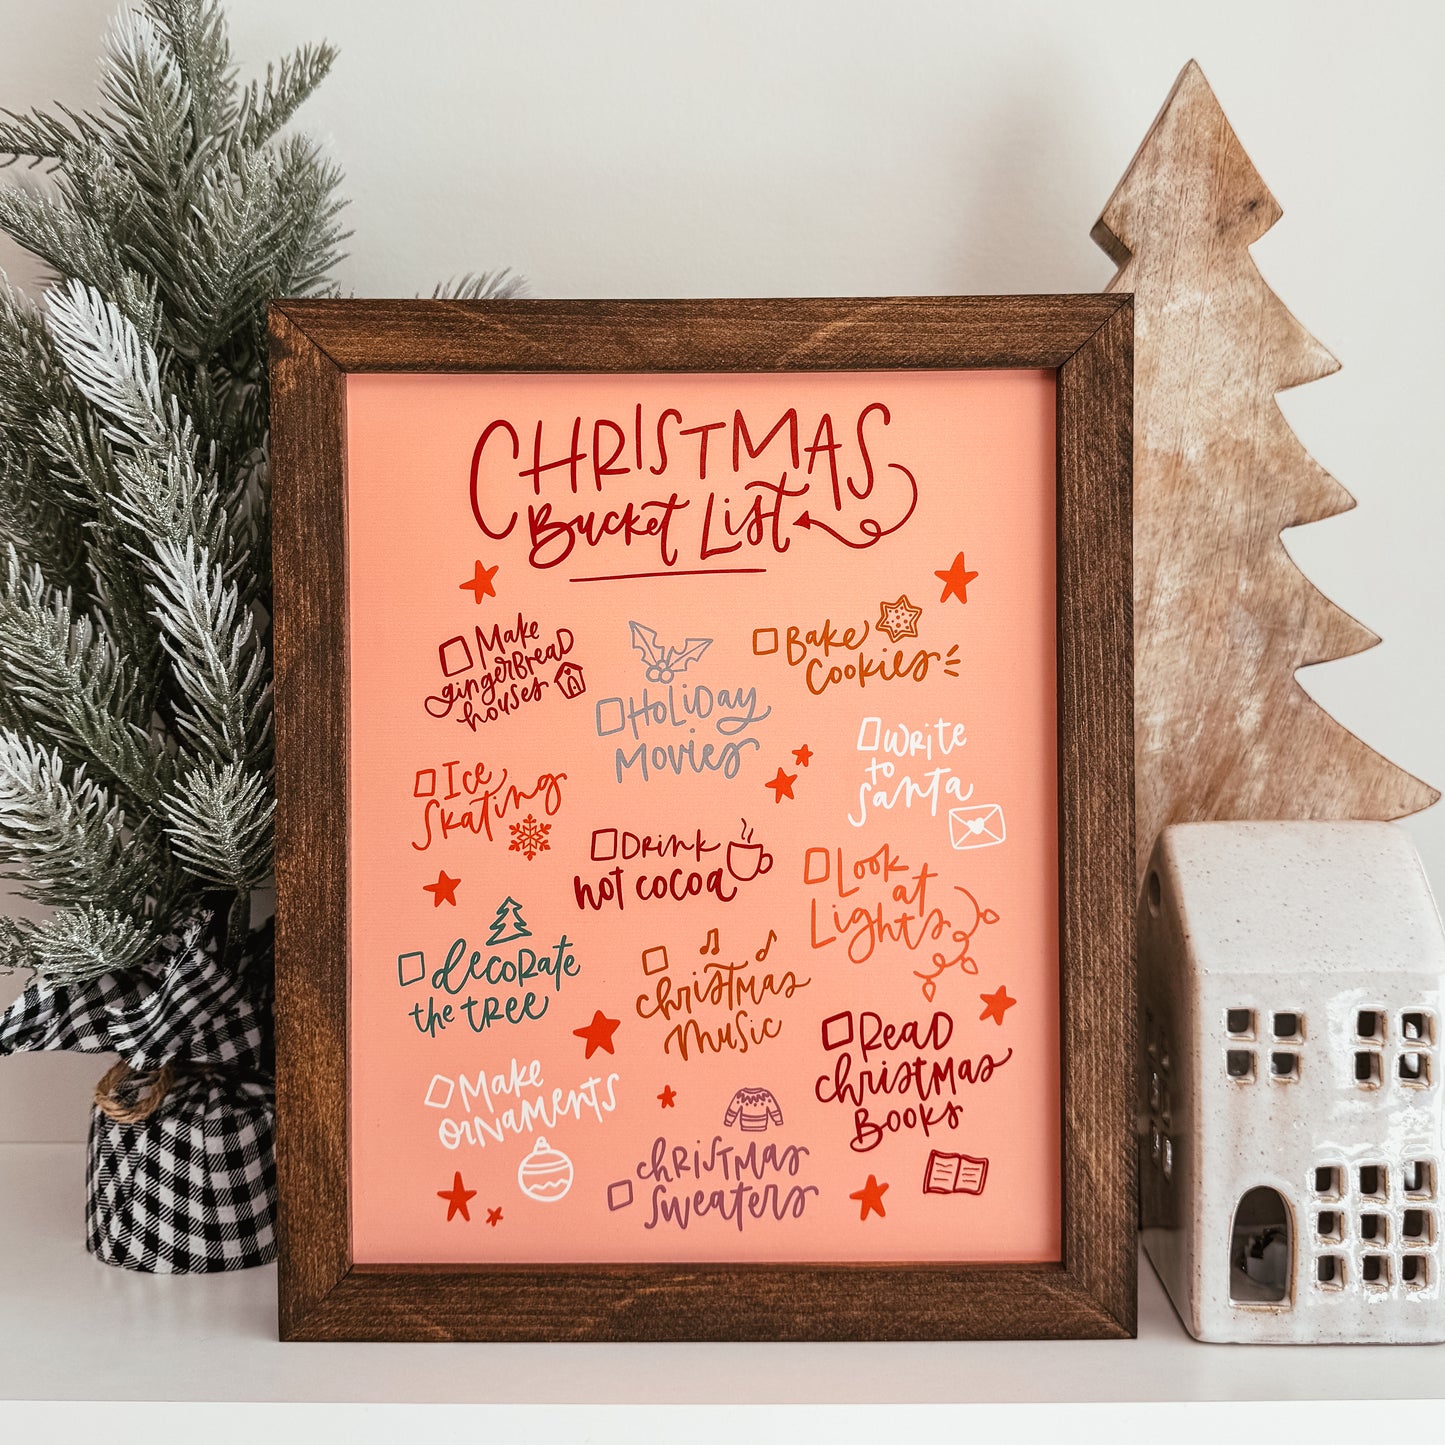 CHRISTMAS
Bucket List
Make
gingerbread
houses
Holiday
Movies
Bake
Cookies
Ice
Skating
Write
to
Santa
Drink
hot cocoa
Look
at
Lights
decorate
the tree
Christmas
Music
Read
Christmas
Books
Make
ornaments
Christmas
Sweaters